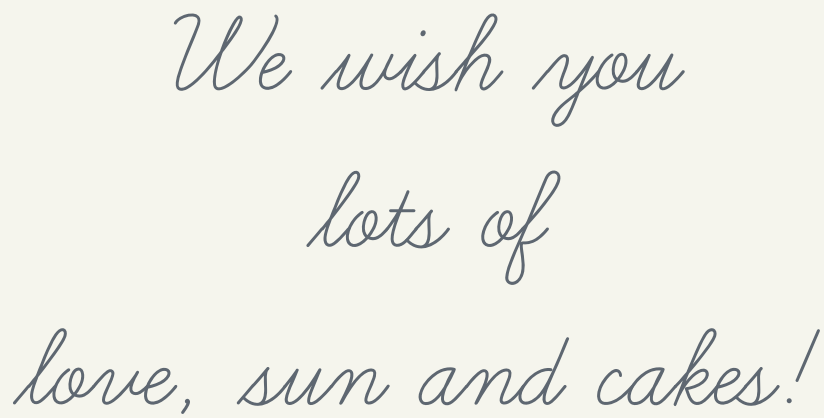 We wish you
lots of
love, sun and cakes!